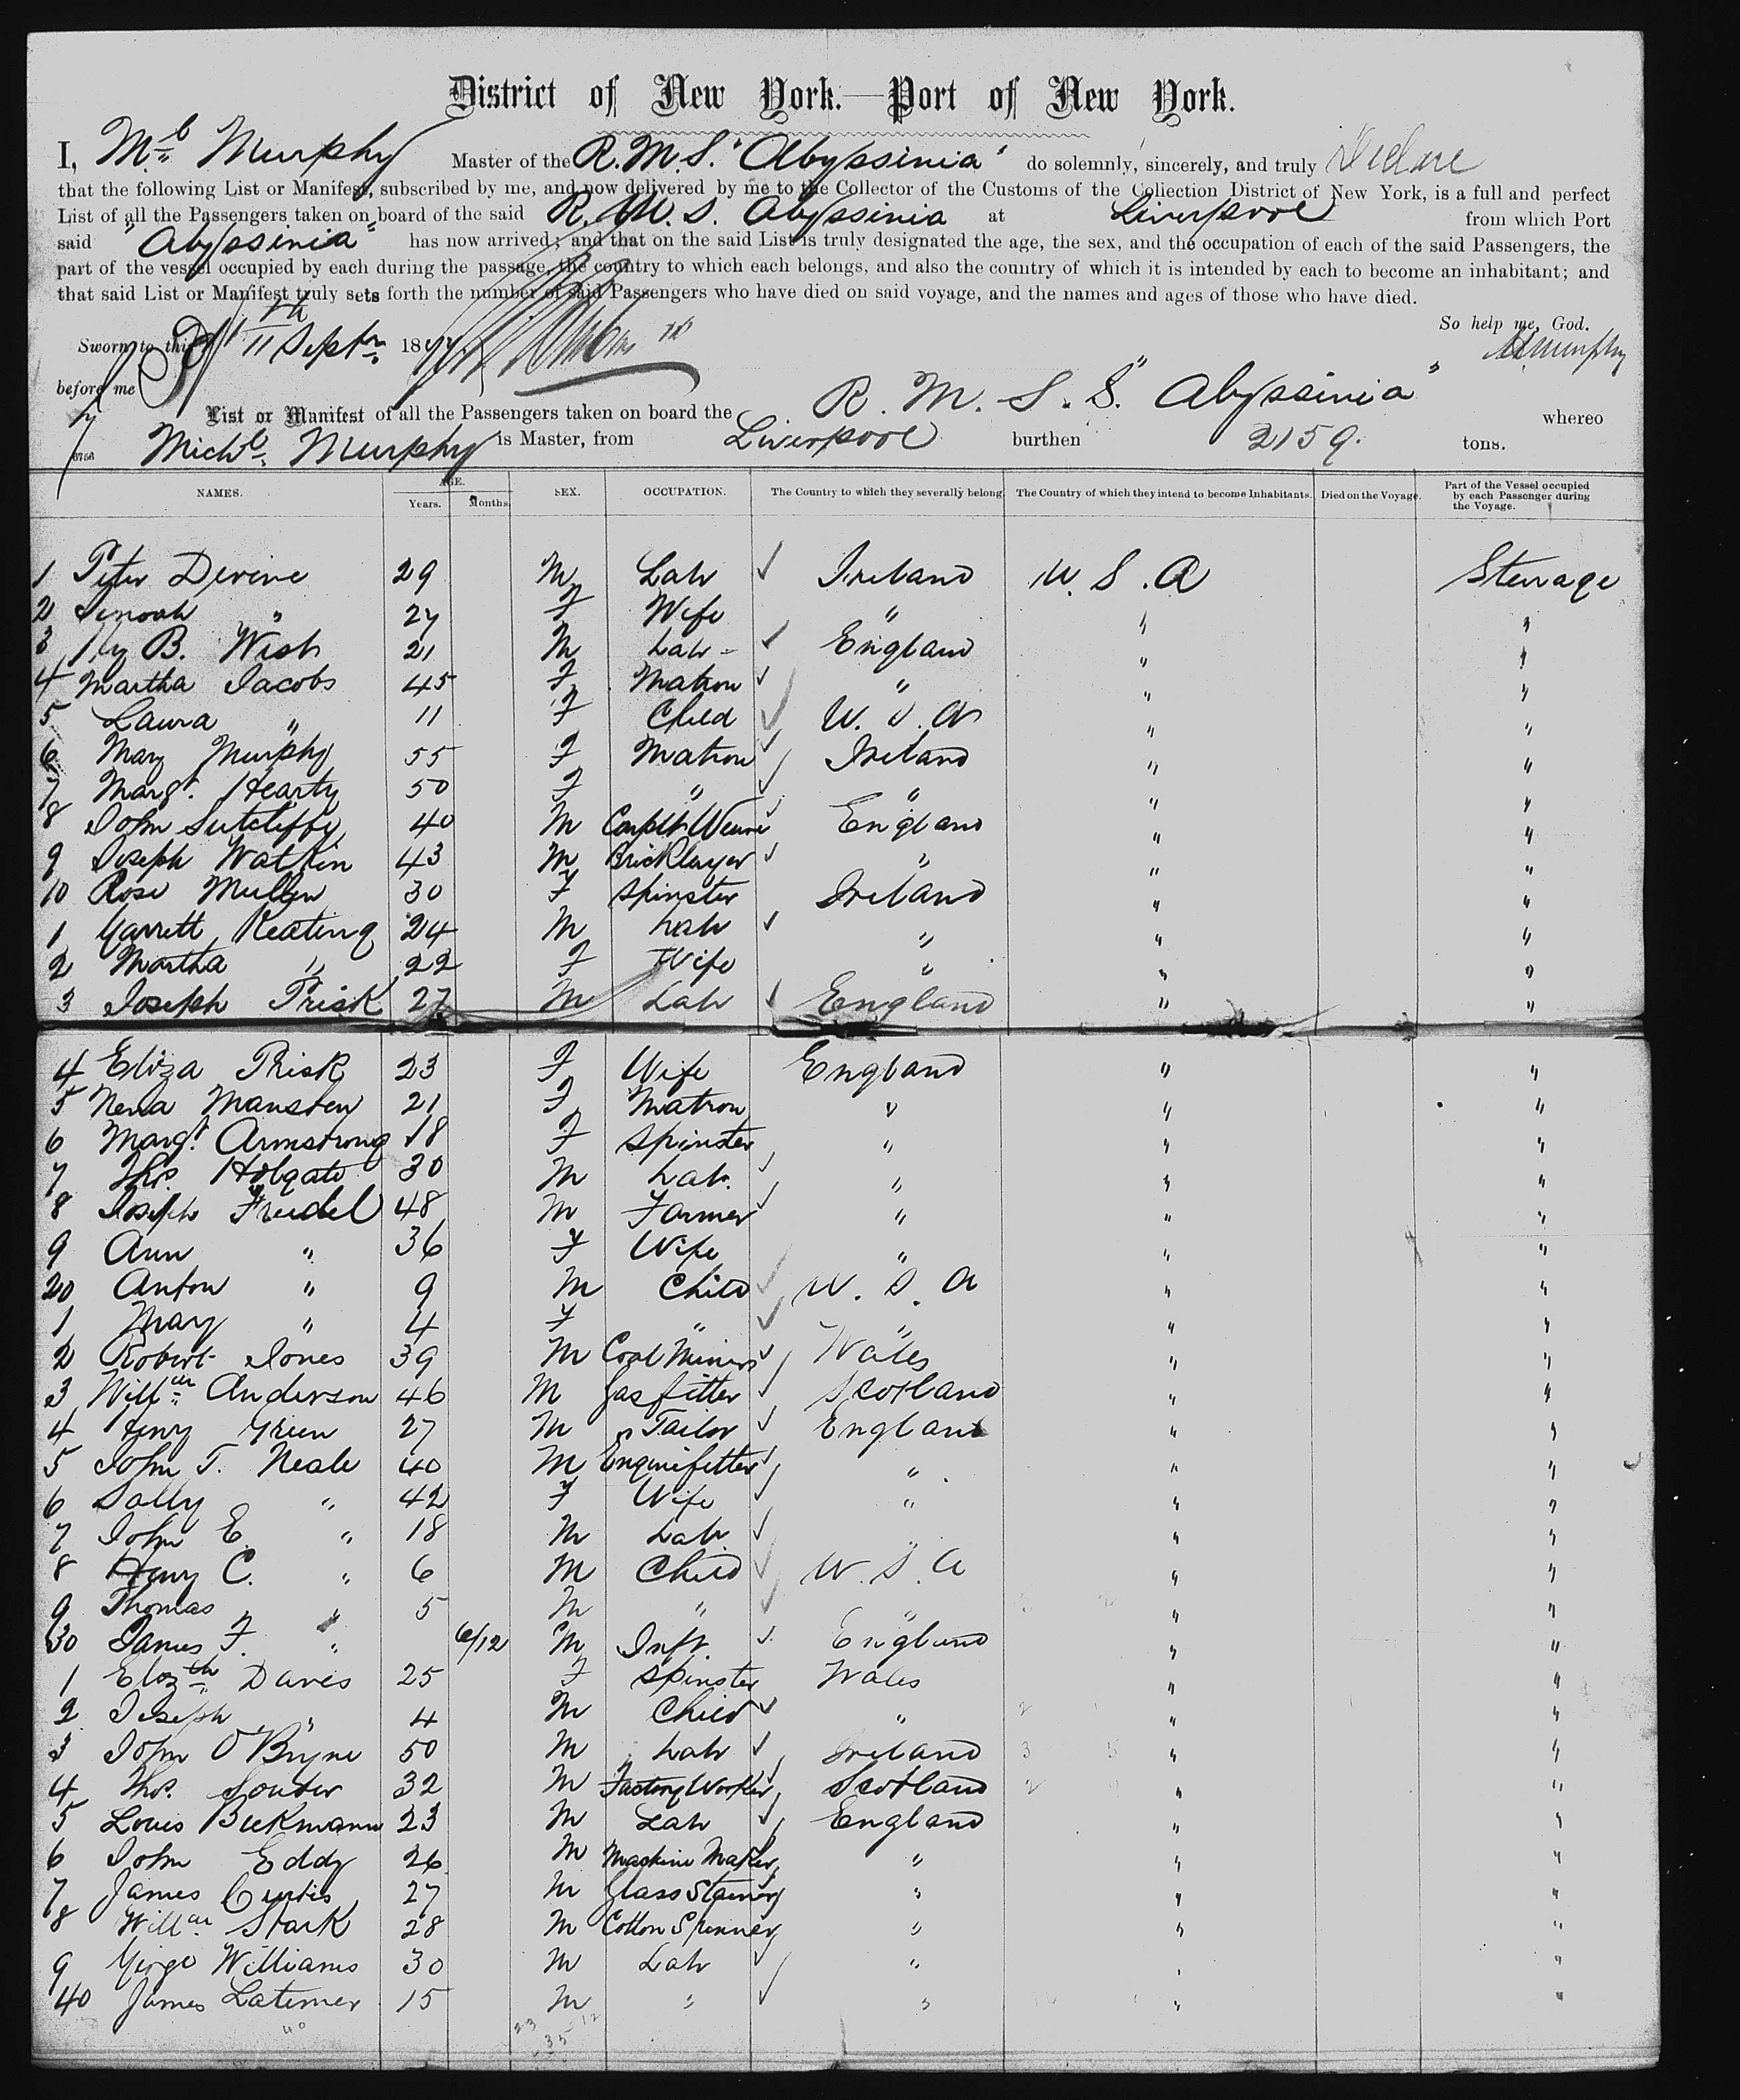 District of New York.—Port of New York.
I, Ml. Murphy Master of the R.M.S. "Abyssinia" do solemnly, sincerely, and truly Declare
that the following List or Manifest, subscribed by me, and now delivered by me to the Collector of the Customs of the Collection District of New York, is a full and perfect
List of all the Passengers taken on board of the said R. M. S. Abyssinia at Liverpool from which Port
said "Abyssinia" has now arrived; and that on the said List is truly designated the age, the sex, and the occupation of each of the said Passengers, the
part of the vessel occupied by each during the passage, the country to which each belongs, and also the country of which it is intended by each to become an inhabitant; and
that said List or Manifest truly sets forth the number of said Passengers who have died on said voyage, and the names and ages of those who have died.
So help me, God.
Sworn to this 11 Septr. 18 Murphy
before me
List or Manifest of all the Passengers taken on board the R. M. S. S. "Abyssinia" whereo
Michl. Murphy is Master, from Liverpool burthen 2159. tons.
NAMES. AGE. Years. Months. SEX. OCCUPATION. The Country to which they severally belong. The Country of which they intend to become Inhabitants. Died on the Voyage. Part of the Vessel occupied by each Passenger during the Voyage.
1 Peter Devine 29 M Lab Ireland U. S. A Steerage
2 " 27 F Wife " " "
3 Hy B. Wish 21 M Lab England " "
4 Martha Jacobs 45 F Matron " " "
5 Laura " 11 F Child U. S. A " "
6 Mary Murphy 55 F Matron Ireland " "
7 Margt. Hearty 50 F " " " "
8 John Sutcliffe 40 M Carpet Weaver England " "
9 Joseph Watkin 43 M Bricklayer " " "
10 Rose Mullen 30 F Spinster Ireland " "
1 Garrett Keating 24 M Lab " " "
2 Martha " 22 F Wife " " "
3 Joseph Prisk 27 M Lab England " "
4 Eliza Prisk 23 F Wife England " "
5 Nena Mansten 21 F Matron " " "
6 Margt. Armstrong 18 F Spinster " " "
7 Thos. Holgate 30 M Lab. " " "
8 Joseph Freidel 48 M Farmer " " "
9 Ann " 36 F Wife " " "
20 Anton " 9 M Child U. S. A " "
1 Mary " 4 F " " " "
2 Robert Jones 39 M Coal Miner Wales " "
3 Willm. Anderson 46 M Gas fitter Scotland " "
4 Henry Green 27 M Tailor England " "
5 John T. Neale 40 M Enginefitter " " "
6 Sally " 42 F Wife " " "
7 John E. " 18 M Lab " " "
8 Henry C. " 6 M Child U. S. A " "
9 Thomas " 5 M " " " "
30 James F. " 6/12 M Inft. England " "
1 Elizth. Davis 25 F Spinster Wales " "
2 Joseph " 4 M Child " " "
3 John O'Bryne 50 M Lab Ireland " "
4 Thos. Souter 32 M Factory Worker Scotland " "
5 Louis Beekmann 23 M Lab England " "
6 John Eddy 26 M Machine Maker " " "
7 James Curtis 27 M Glass Stainer " " "
8 Willm. Stark 28 M Cotton Spinner " " "
9 George Williams 30 M Lab " " "
40 James Latimer 15 M " " " "